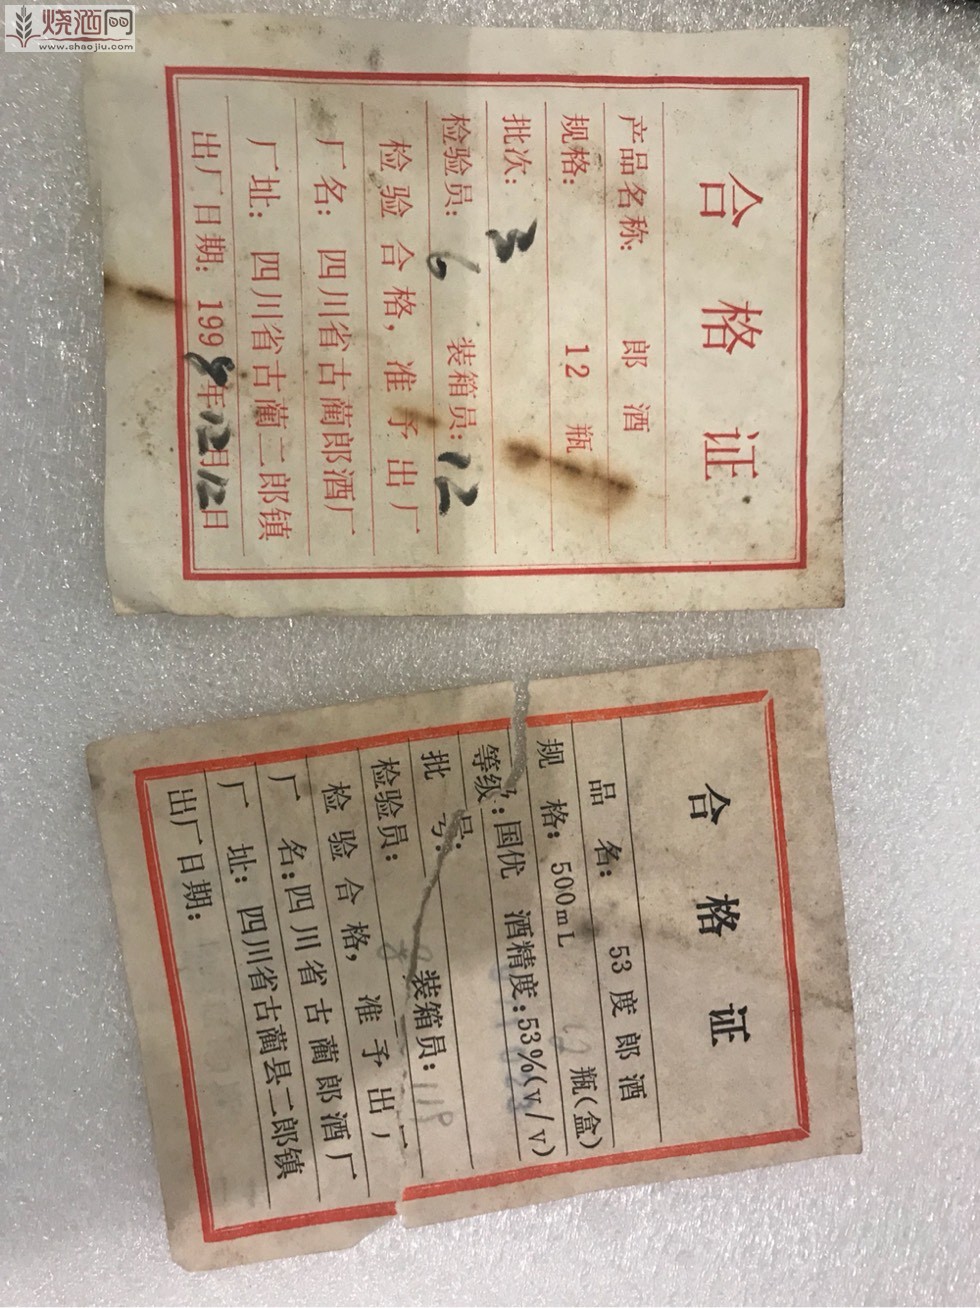 烧酒网
www.shaojiu.com
合格证
产品名称: 郎酒
规格: 12瓶
批次: 3
检验员: 6 装箱员: 12
检验合格，准予出厂
厂名: 四川省古蔺郎酒厂
厂址: 四川省古蔺二郎镇
出厂日期: 1998年12月12日
合格证
品名: 53度郎酒
规格: 500mL 12瓶(盒)
等级:国优 酒精度:53%(v/v)
批号:
检验员: 装箱员: 118
检验合格，准予出厂
厂名:四川省古蔺郎酒厂
厂址: 四川省古蔺县二郎镇
出厂日期: